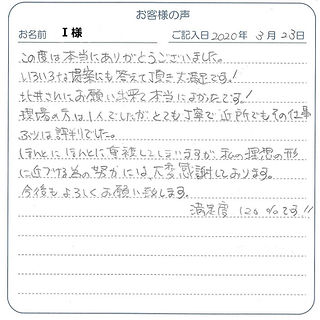 お客様の声
お名前 I様 ご記入日 2020年 3月 23日
この度は本当にありがとうございました。
いろいろな提案にも答えて頂き大満足です!
北井さんにお願い出来て本当によかったです!
現場の方は1人でしたがとても丁寧で近所でもその仕事
ぶりは評判でした。
ほんとにほんとに重複してしまいますが私の理想の形
に近づける為の努力には大変感謝しております。
今後もよろしくお願い致します。
満足度 120%です!!